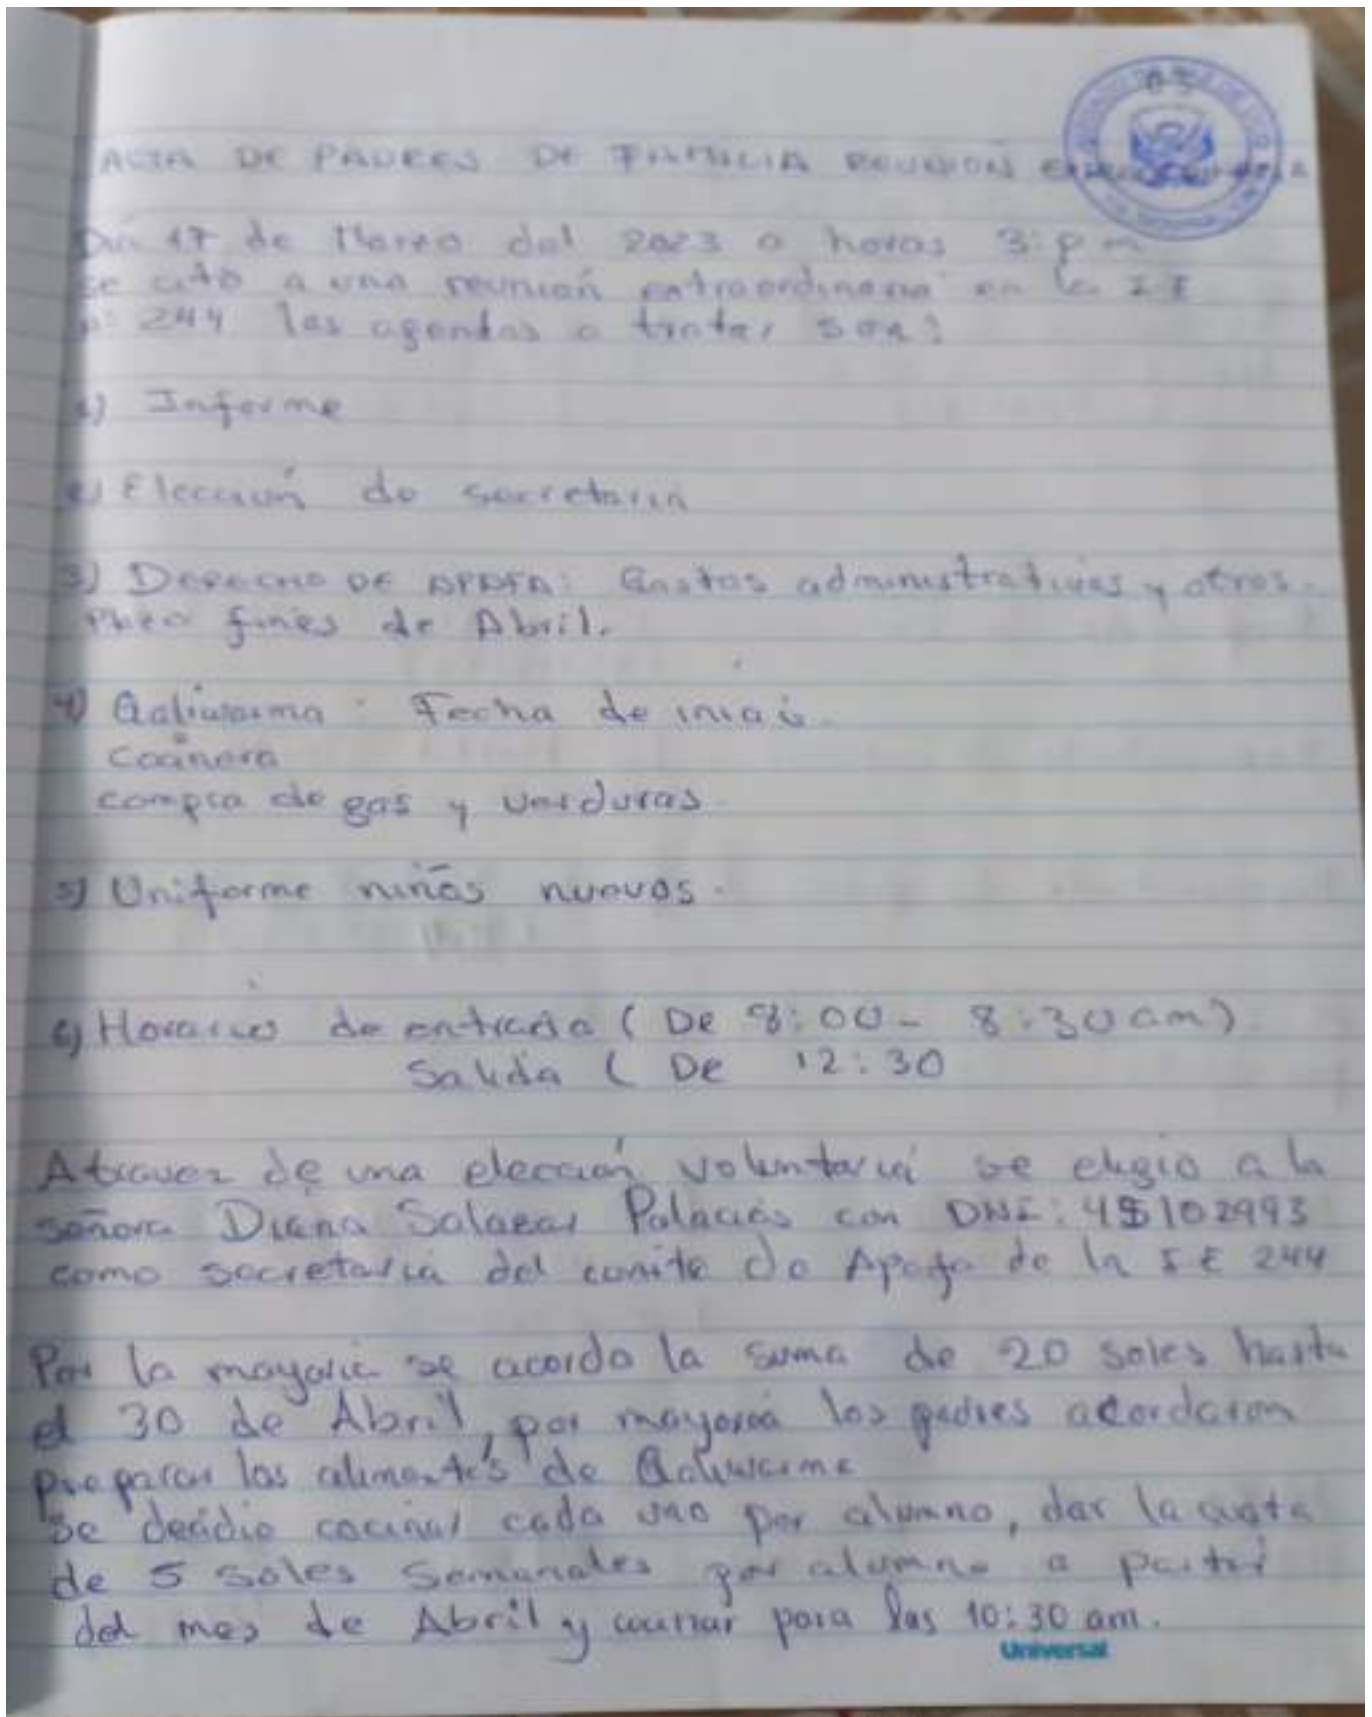 05
ACTA DE PADRES DE FAMILIA REUNION
Dia 17 de Marzo del 2023 a horas 3:pm
se citó a una reunión extraordinaria en la I E
N° 244 las agendas a tratar son:
1) Informe
2) Elección de secretaria
3) DERECHO DE APAFA: Gastos administrativos y otros.
Plazo fines de Abril.
4) Qaliwarma: Fecha de inicio.
Cocinera
compra de gas y verduras.
5) Uniforme niños nuevos.
6) Horarios de entrada ( De 8:00 - 8:30 am)
Salida ( De 12:30
Atraver de una elección voluntaria se eligio a la
señora Diana Salazar Palacios con DNI:
como secretaria del comite de Apafa de la I E 244
Por la mayoria se acordo la suma de 20 soles hasta
el 30 de Abril, por mayoria los padres acordaron
preparar los alimentos de Qaliwarma
Se decidio cocinar cada uno por alumno, dar la cuota
de 5 soles Semanales por alumno a partir
del mes de Abril y cocinar para las 10:30 am.
Universal